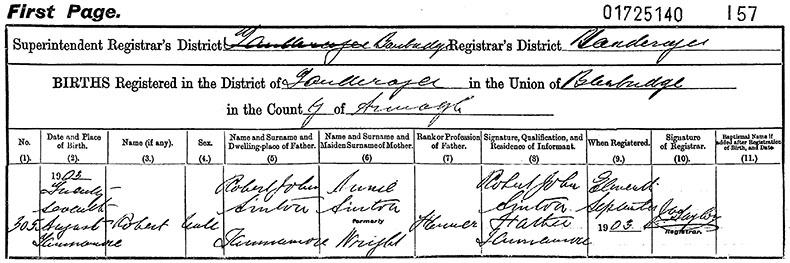 First Page.
01725140 157
Superintendent Registrar's District Banbridge Registrar's District Tanderagee
BIRTHS Registered in the District of Tanderagee in the Union of Banbridge
in the County of Armagh
No. Date and Place of Birth. Name (if any). Sex. Name and Surname and Dwelling-place of Father. Name and Surname and Maiden Surname of Mother. Rank or Profession of Father. Signature, Qualification, and Residence of Informant. When Registered. Signature of Registrar. Baptismal Name if added after Registration of Birth, and Date.
(1). (2). (3). (4). (5) (6) (7) (8) (9.) (10.) (11.)
1903 Robert John Annie Robert John Eleventh
Twenty- Sinton Sinton Sinton September
seventh formerly Father 1903
305 August Robert Male Wright Farmer Registrar.